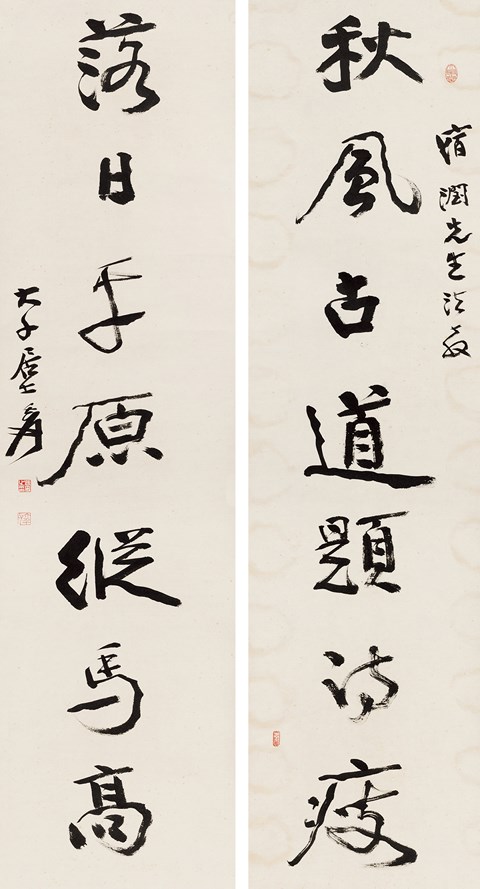 潤先生法教
秋風古道題詩瘦
落日平原縱馬高
大千居士爰